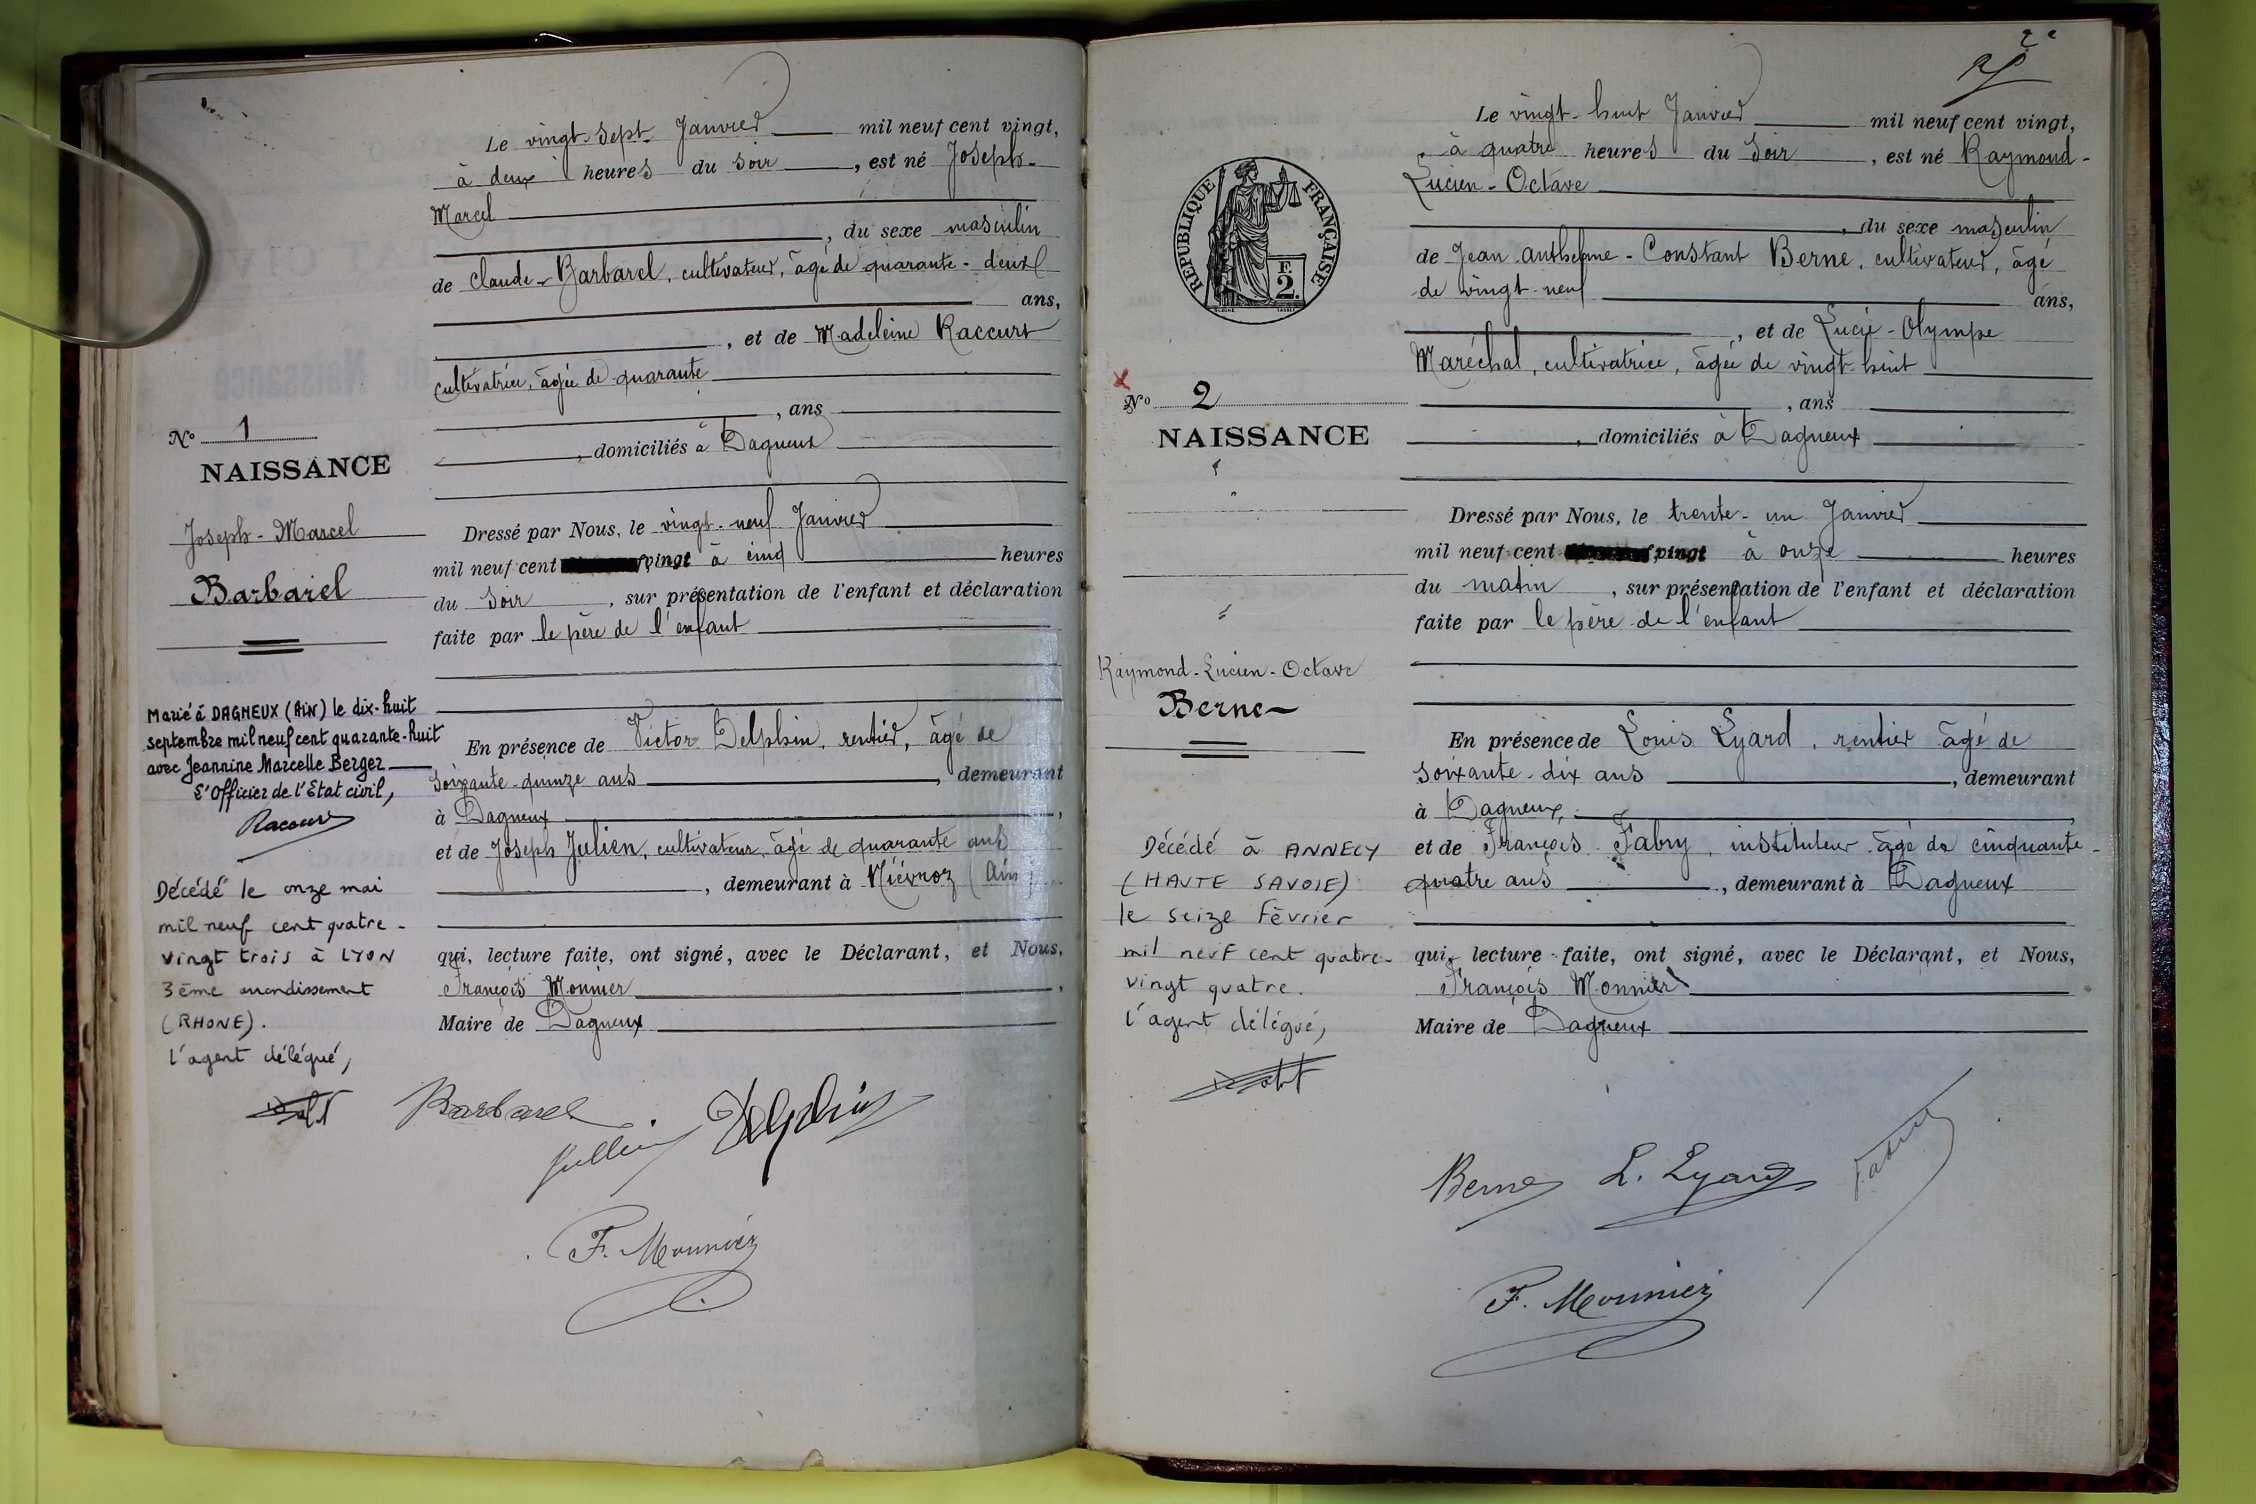 Le vingt-sept Janvier mil neuf cent vingt,
à deux heures du soir, est né Joseph-
Marcel
, du sexe masculin
de Claude Barbarel, cultivateur, âgé de quarante-deux
ans,
, et de Madeleine Raccurt
cultivatrice, âgée de quarante
, ans
, domiciliés à Dagneux
Dressé par Nous, le vingt-neuf Janvier
mil neuf cent vingt à cinq heures
du soir, sur présentation de l'enfant et déclaration
faite par le père de l'enfant
En présence de Victor Delphin, rentier, âgé de
soixante-quinze ans, demeurant
à Dagneux,
et de Joseph Julien, cultivateur, âgé de quarante ans
, demeurant à Niévroz (Ain)
qui, lecture faite, ont signé, avec le Déclarant, et Nous,
François Monnier,
Maire de Dagneux
Nº 1
NAISSANCE
Joseph-Marcel
Barbarel
Marié à DAGNEUX (AIN) le dix-huit
septembre mil neuf cent quarante-huit
avec Jeannine Marcelle Berger
L'Officier de l'Etat civil,
Décédé le onze mai
mil neuf cent quatre-
vingt trois à LYON
3ème arrondissement
(RHONE).
l'agent délégué,
Barbarel
Jullien Delphin
F. Monnier
2e
Le vingt-huit Janvier mil neuf cent vingt,
à quatre heures du soir, est né Raymond-
Lucien-Octave
, du sexe masculin
de Jean Anthelme-Constant Berne, cultivateur, âgé
de vingt-neuf ans,
, et de Lucie-Olympe
Maréchal, cultivatrice, âgée de vingt-huit
, ans
, domiciliés à Dagneux
Dressé par Nous, le trente-un Janvier
mil neuf cent vingt à onze heures
du matin, sur présentation de l'enfant et déclaration
faite par le père de l'enfant
En présence de Louis Lyard, rentier âgé de
soixante-dix ans, demeurant
à Dagneux,
et de François Fabry, instituteur âgé de cinquante-
quatre ans, demeurant à Dagneux
qui, lecture faite, ont signé, avec le Déclarant, et Nous,
François Monnier
Maire de Dagneux
REPUBLIQUE FRANÇAISE
F.
2.
Nº 2
NAISSANCE
Raymond-Lucien-Octave
Berne
Décédé à ANNECY
(HAUTE SAVOIE)
le seize Février
mil neuf cent quatre-
vingt quatre.
l'agent délégué,
Berne L. Lyard Fabry
F. Monnier